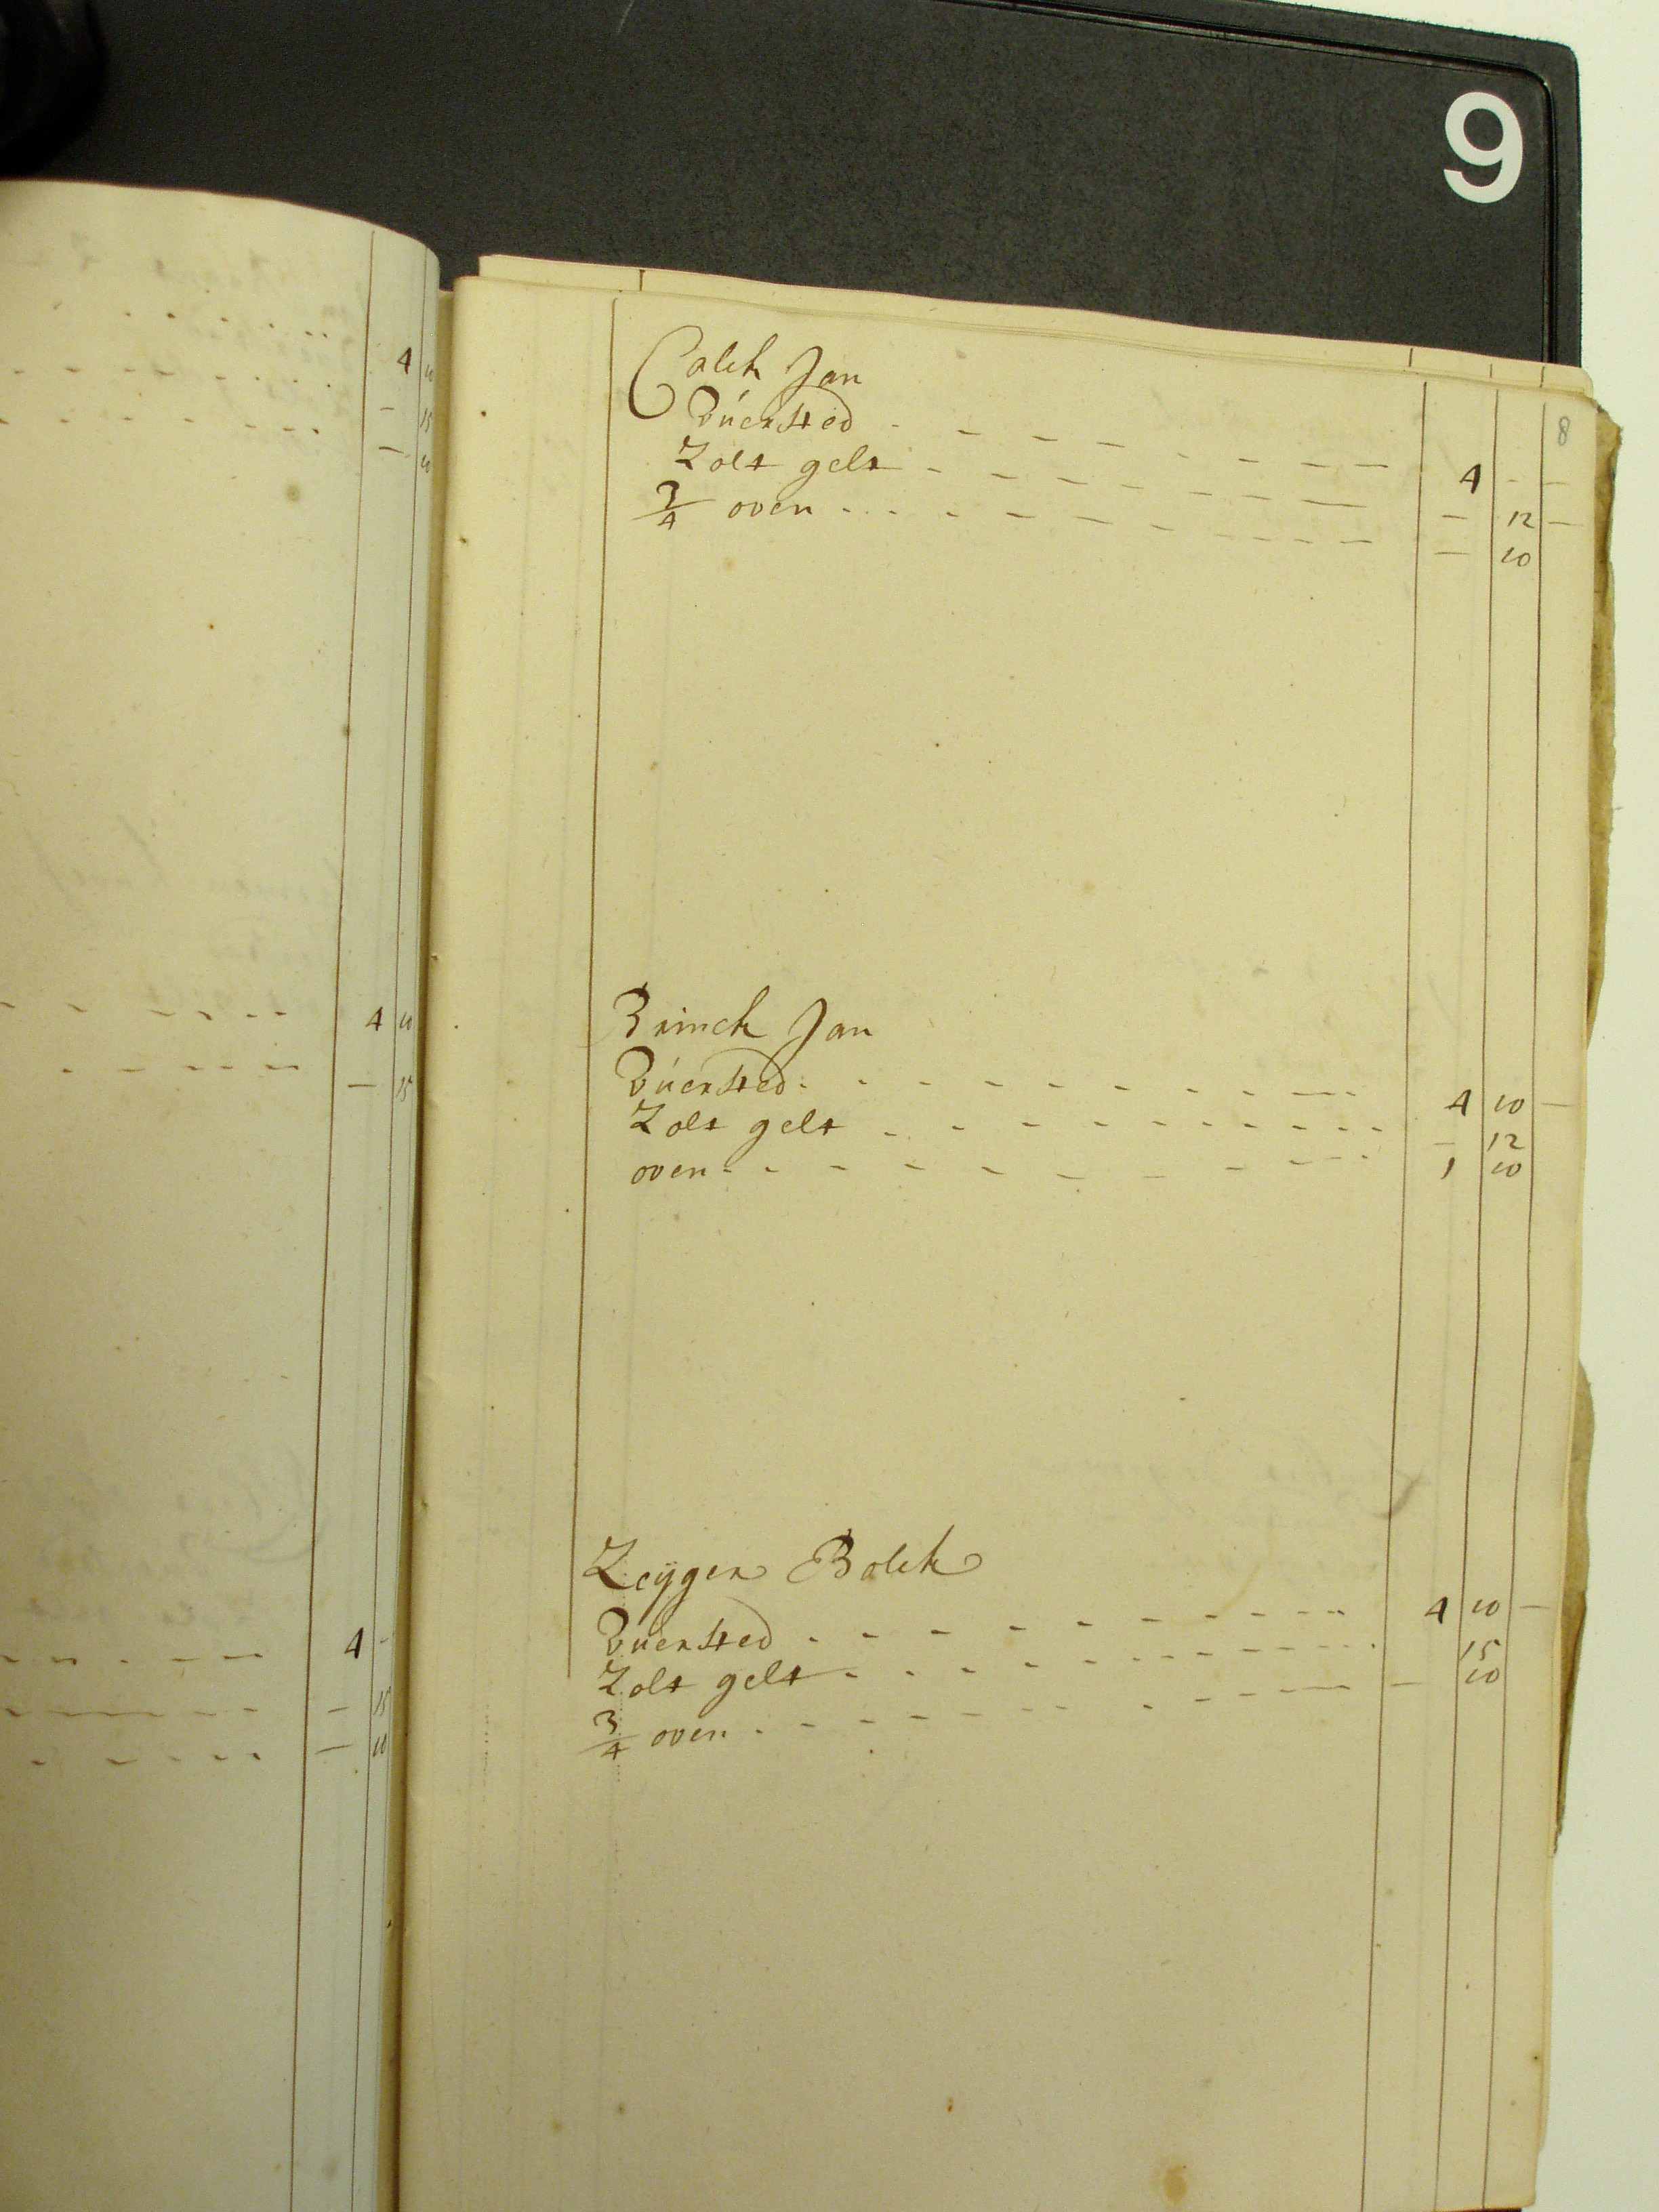 9
8
Calck Jan
Búersted - - - - - - - - 4 - -
Zolt gelt - - - - - - - - — 12 —
3/4 oven - - - - - - - - — 10
Brinck Jan
Búersted - - - - - - - - 4 10 —
Zolt gelt - - - - - - - - — 12
oven - - - - - - - - 1 10
Zeyger Bolck
Búersted - - - - - - - - 4 10 —
Zolt gelt - - - - - - - - 15
3/4 oven - - - - - - - - — 10
4 10
— 15
— 10
4 10
— 15
4 -
— 15
— 10